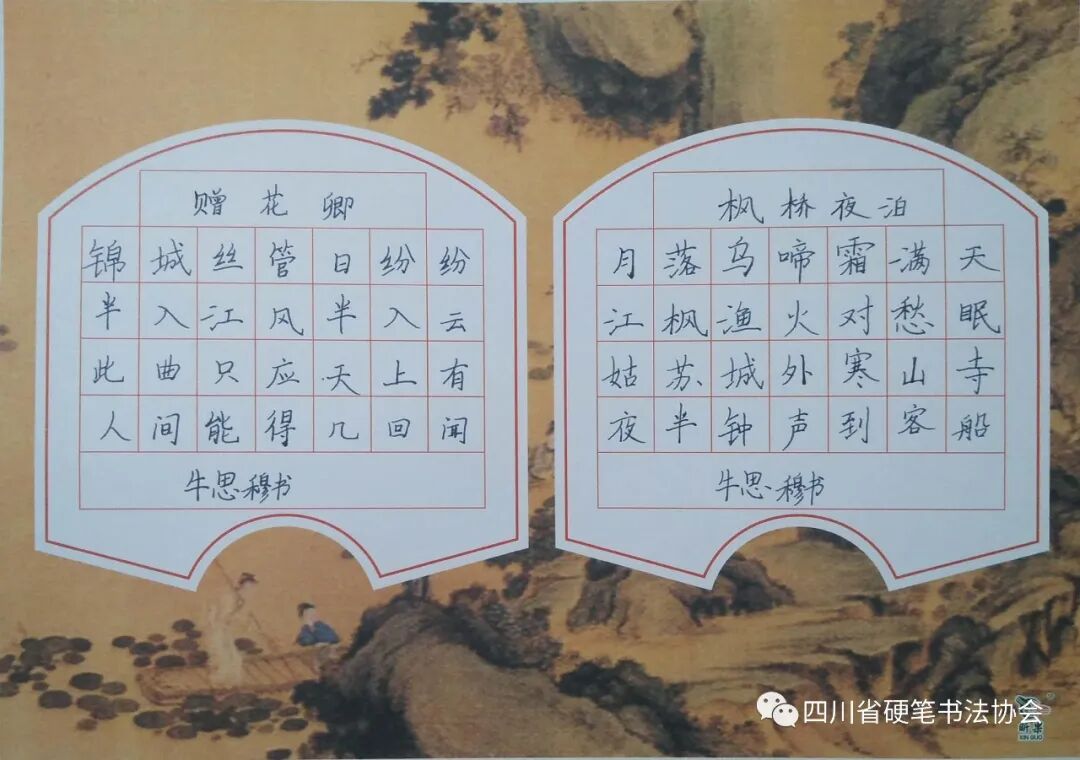 赠花卿
锦城丝管日纷纷
半入江风半入云
此曲只应天上有
人间能得几回闻
牛思穆书
枫桥夜泊
月落乌啼霜满天
江枫渔火对愁眠
姑苏城外寒山寺
夜半钟声到客船
牛思穆书
四川省硬笔书法协会
XIN GUO